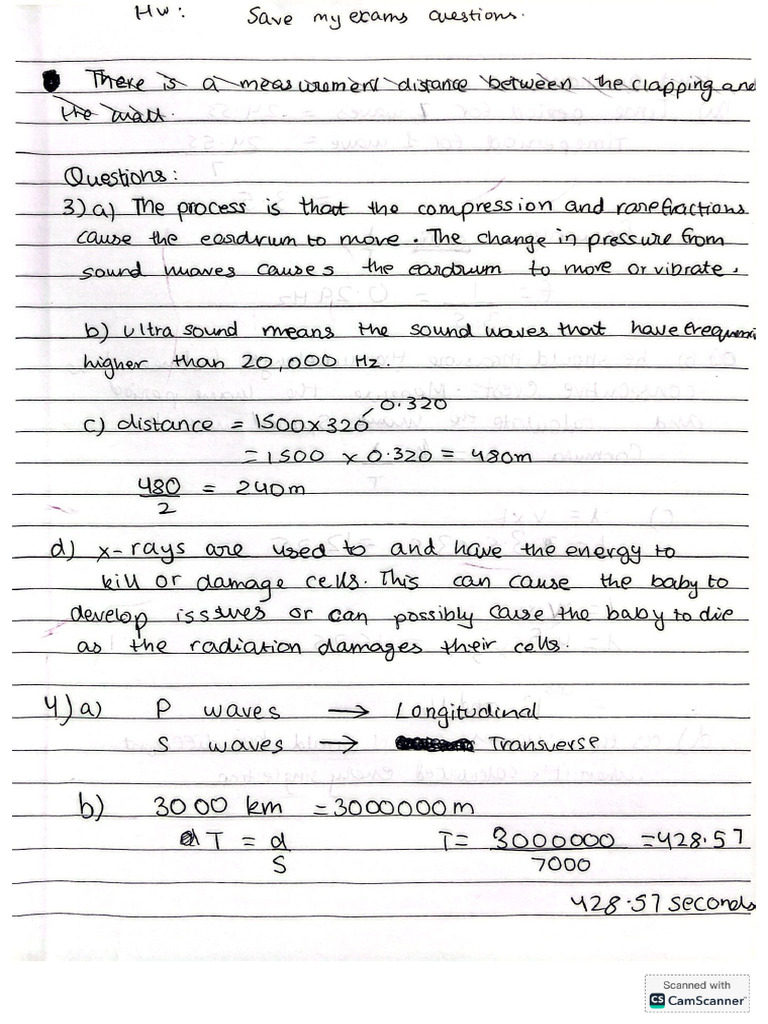 Hw: Save my exams questions.
There is a measurement distance between the clapping and
the wall.
Questions:
3) a) The process is that the compression and rarefractions
cause the eardrum to move. The change in pressure from
sound waves causes the eardrum to move or vibrate.
b) ultra sound means the sound waves that have frequenci
higher than 20,000 Hz.
c) distance = 1500 x 320 0.320
= 1500 x 0.320 = 480m
480/2 = 240m
d) x-rays are used to and have the energy to
kill or damage cells. This can cause the baby to
develop isssues or can possibly cause the baby to die
as the radiation damages their cells.
4) a) P waves → Longitudinal
S waves → Transverse
b) 3000 km = 3000000m
T = d/S T = 3000000/7000 = 428.57
428.57 seconds
Scanned with
CS CamScanner